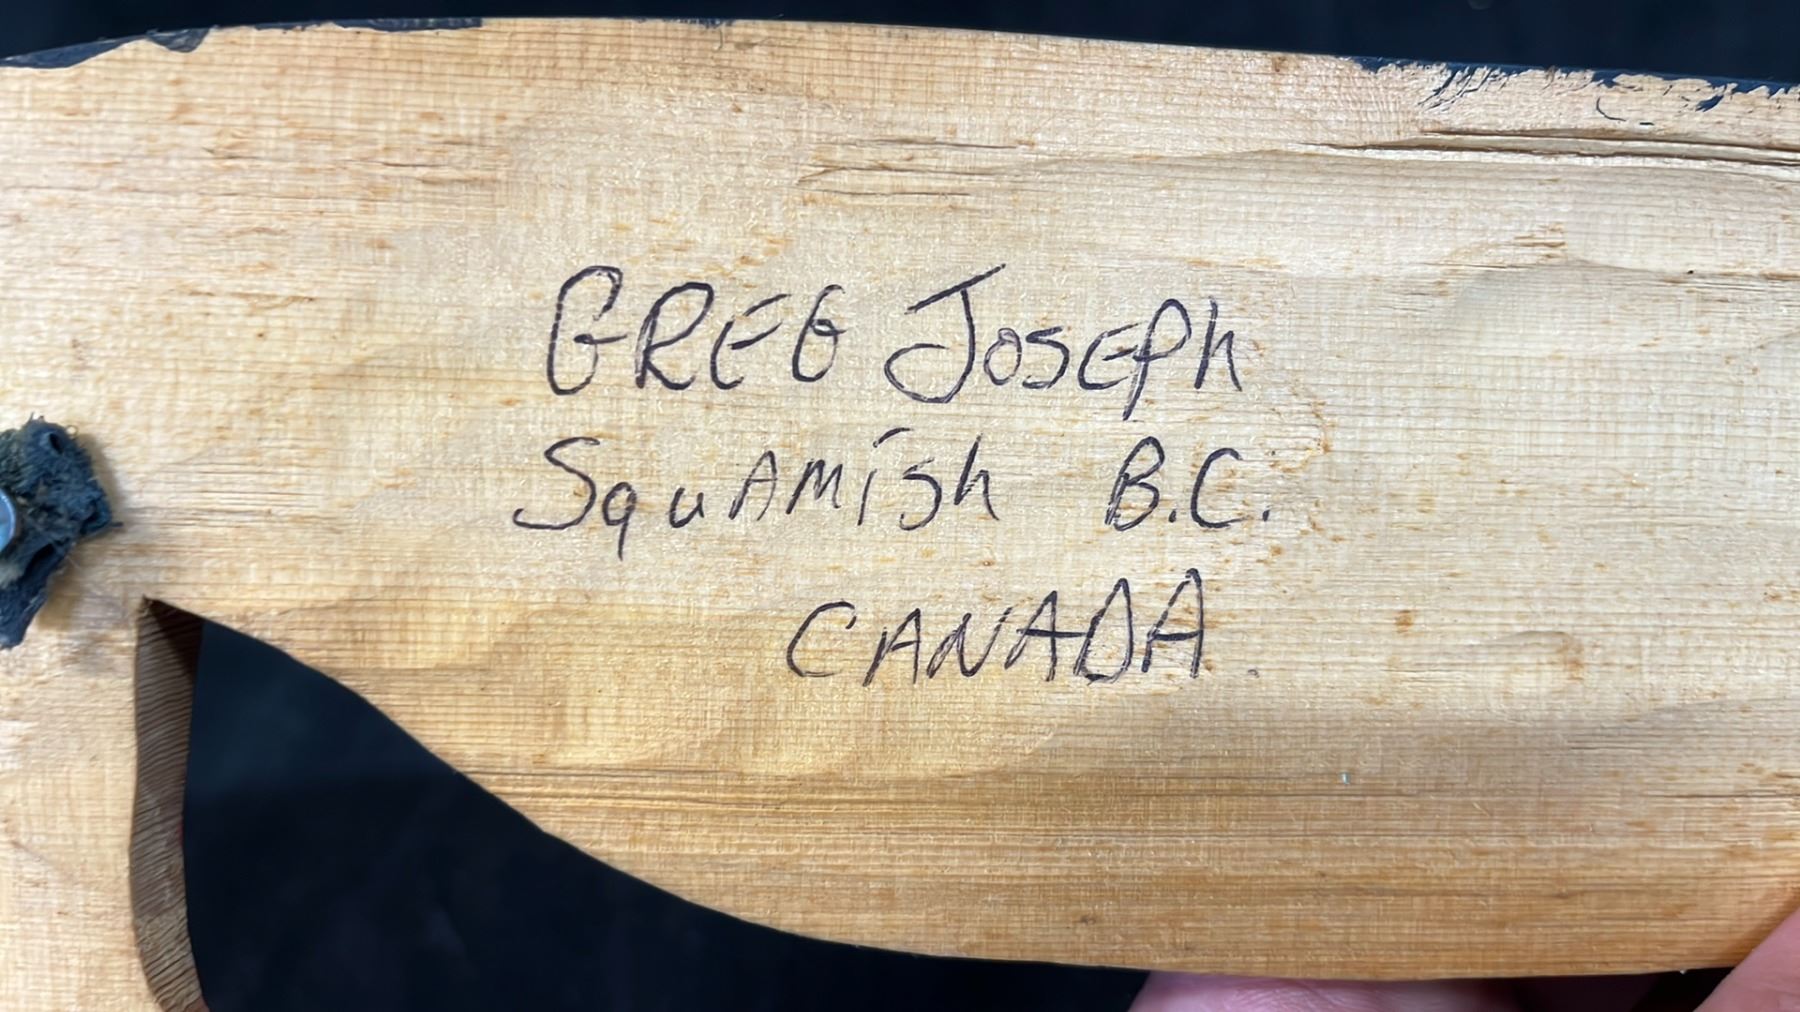 GREG JosEPh
SquAMish B.C.
CANADA.